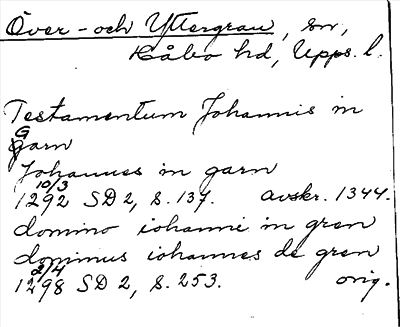 Över- och Yttergrau, sn,
Håbo hd, Upps. l.
Testamentum Johannis in
Garn
Johannes in garn
10/3
1292 SD 2, s. 137. avskr. 1344.
domino iohanni in gren
dominus iohannes de gren
2/4
1298 SD 2, s. 253. orig.